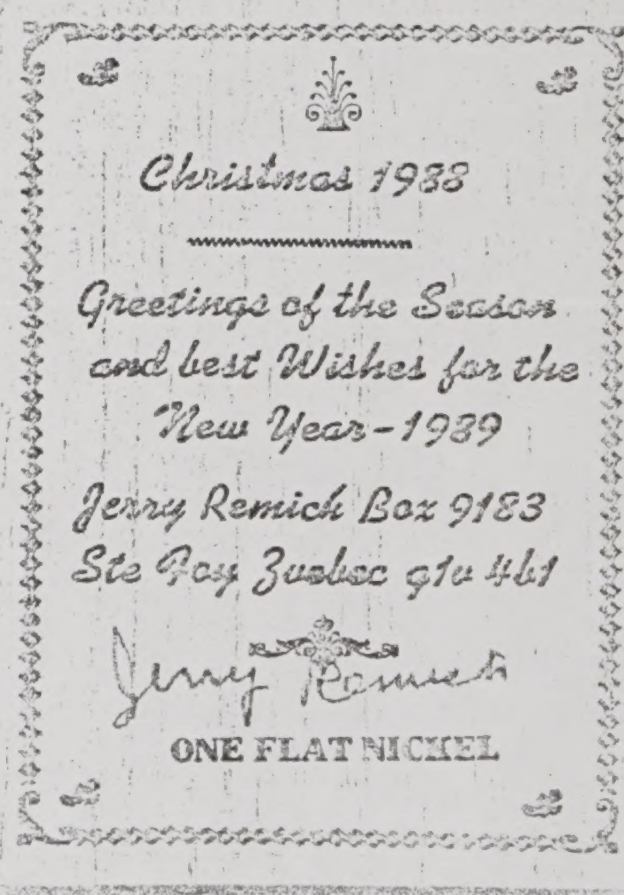 Christmas 1988
Greetings of the Season
and best Wishes for the
New Year-1989
Jerry Remich Box 9183
Ste Foy Quebec g1v 4b1
Jerry Remich
ONE FLAT NICKEL